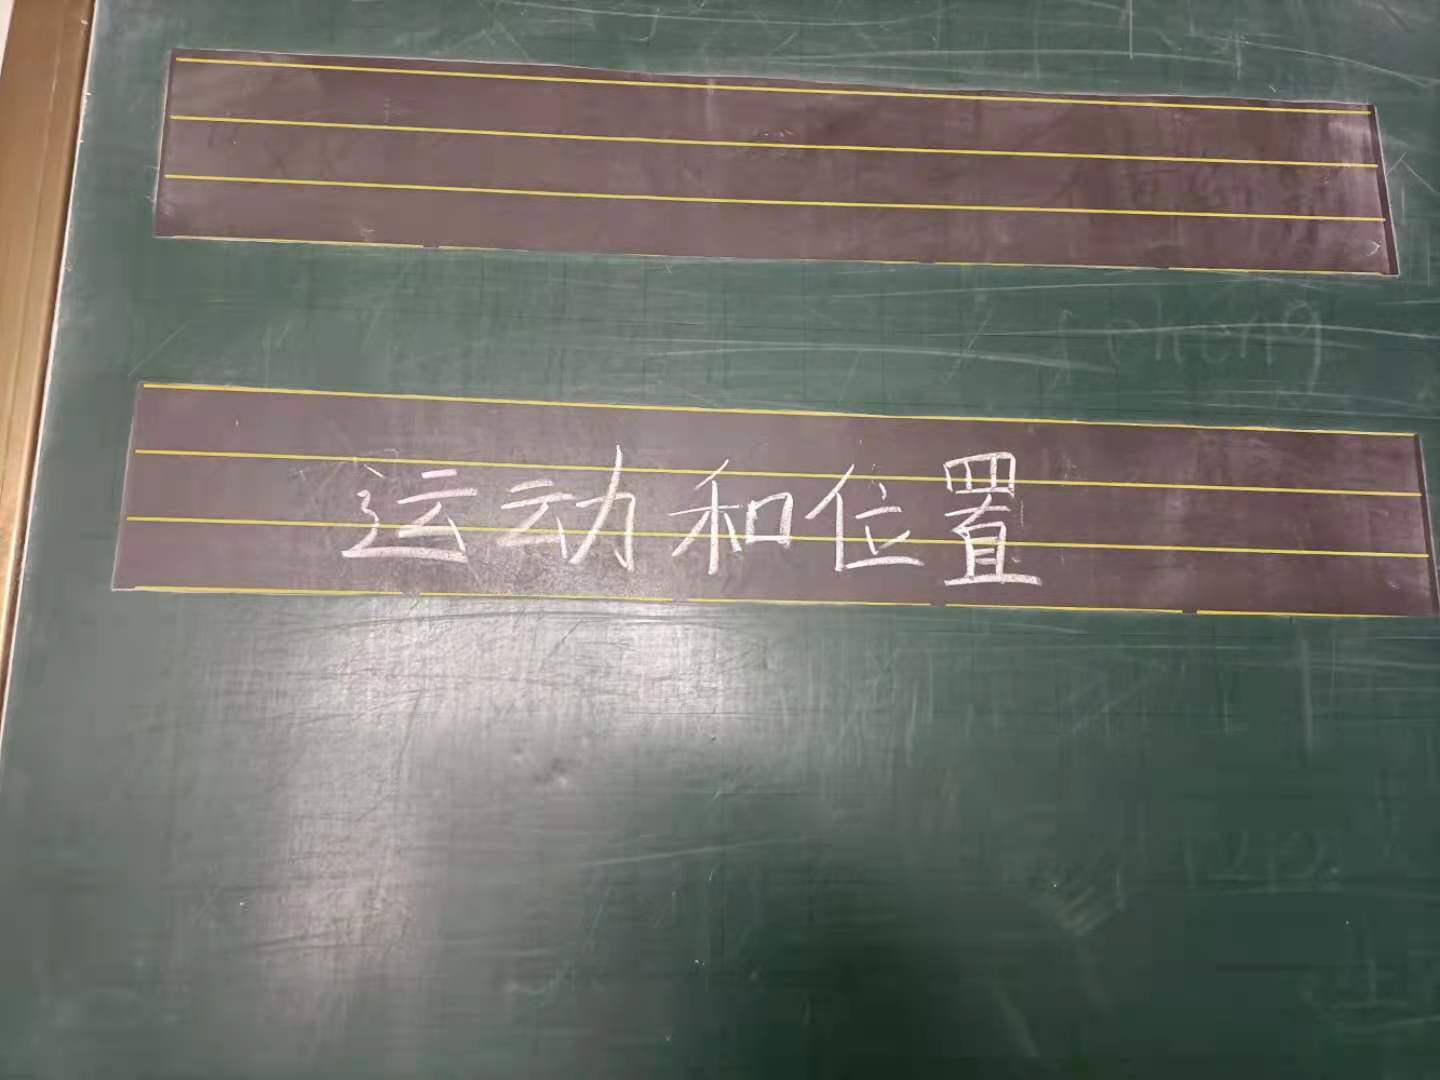 运动和位置